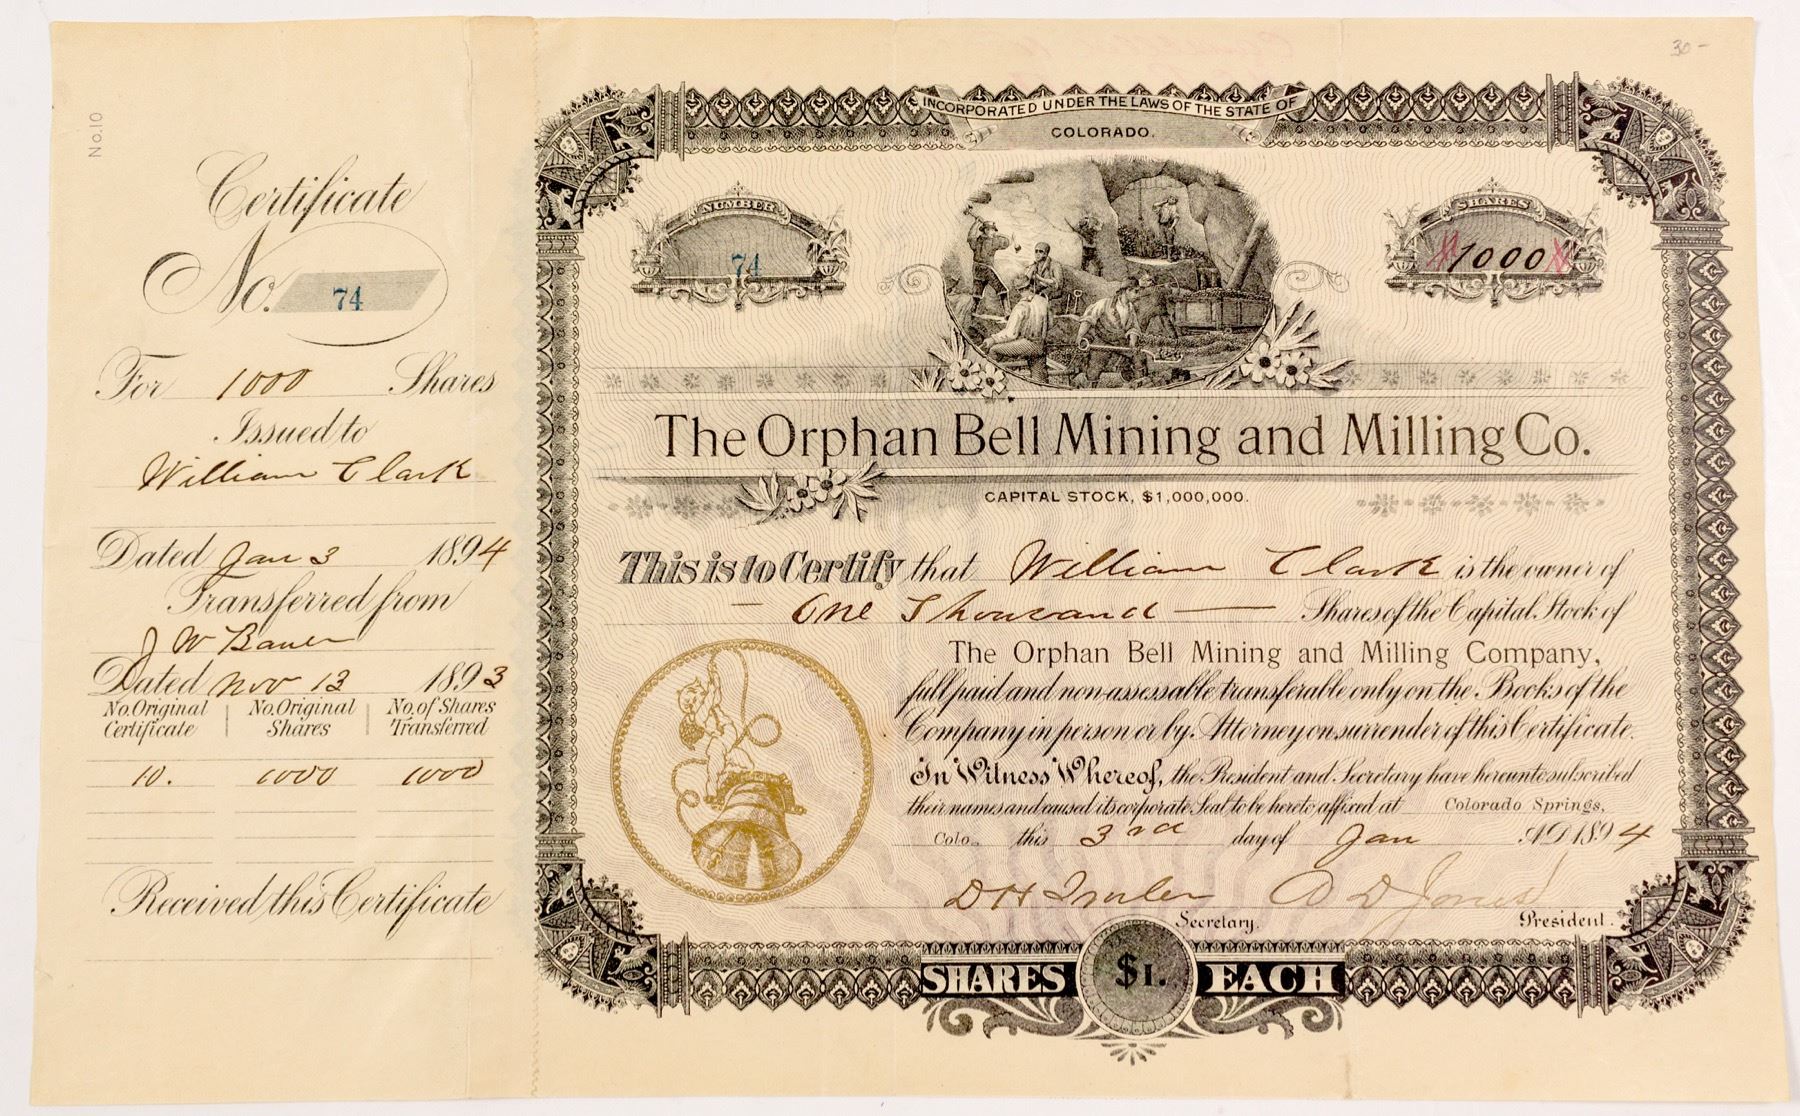 30-
No.10
Certificate
No. 74
For 1000 Shares
Issued to
William Clark
Dated Jan 3 1894
Transferred from
J W Bauer
Dated Nov 13 1893
No. Original Certificate | No. Original Shares | No. of Shares Transferred
10. 1000 1000
Received this Certificate
INCORPORATED UNDER THE LAWS OF THE STATE OF
COLORADO.
NUMBER
74
SHARES
1000
The Orphan Bell Mining and Milling Co.
CAPITAL STOCK, $1,000,000.
This is to Certify that William Clark is the owner of
— One Thousand — Shares of the Capital Stock of
The Orphan Bell Mining and Milling Company,
full paid and non-assessable transferable only on the Books of the
Company in person or by Attorney on surrender of this Certificate.
In Witness Whereof, the President and Secretary have hereunto subscribed
their names and caused its corporate Seal to be hereto affixed at Colorado Springs,
Colo. this 3rd day of Jan A.D. 1894
D H D Jones
Secretary. President.
SHARES $1. EACH